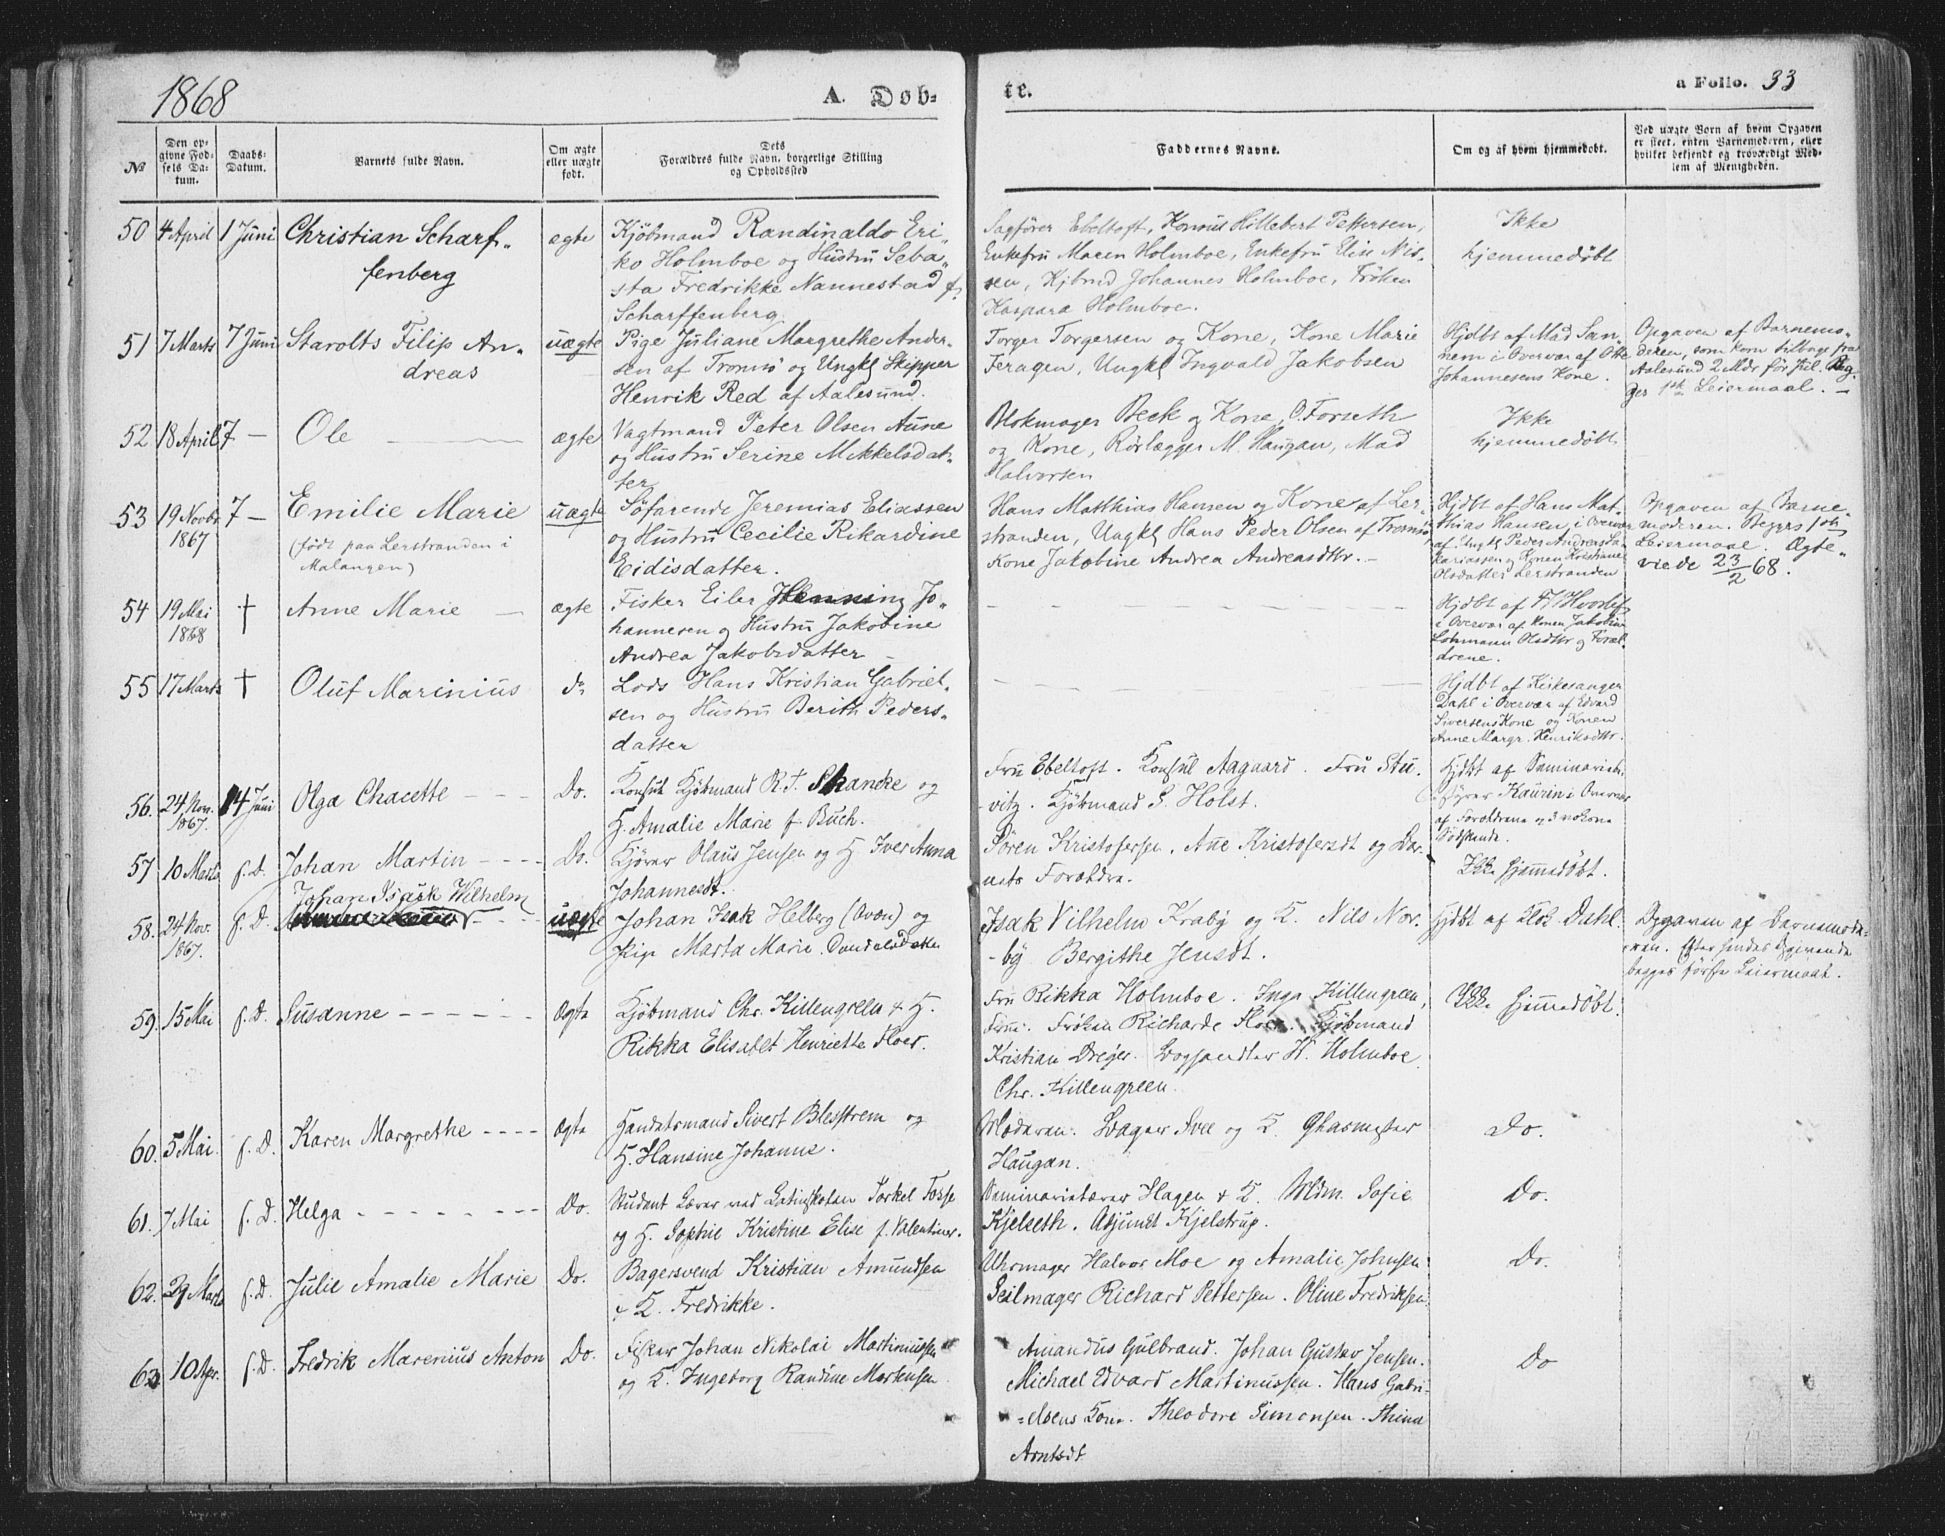 1868
A. Døb-
te.
a Folio. 33
No
Den op-
givne Fød-
sels Da-
tum.
Daabs-
Datum.
Barnets fulde Navn.
Om ægte
eller uægte
født.
Dets
Forældres fulde Navn, borgerlige Stilling
og Opholdssted
Faddernes Navne.
Om og af hvem hjemmedøbt.
Ved uægte Børn af hvem Opgaven
er skeet, enten Barnemoderen, eller
hvilket bekjendt og troværdigt Med-
lem af Menigheden.
50 4 April 1 Juni Christian Scharf-
fenberg
ægte
Kjöbmand Randinaldo Eri-
ko Holmboe og Hustru Seba-
sta Fredrikke Nannestad f.
Scharffenberg
Sagförer Ebeltoft, Konsul Hillebert Pettersen,
Enkefru Maren Holmboe, Enkefru Elise Nis-
sen, Kjbmd Johannes Holmboe, Fröken
Kaspara Holmboe.
Ikke
hjemmedöbt
51 7 Marts 7 Juni Starolts Filip An-
dreas
uægte
Pige Juliane Margrethe Ander-
sen af Tromsö og Ungkl Skipper
Henrik Red af Aalesund.
Torger Torgersen og Kone, Kone Marie
Feragen, Ungkl Ingvald Jakobsen
Hjdbt af Mad San-
nem i Overvær af Otte
Johannesens Kone.
Opgaven af Barnemo-
deren, som kom tilbage fra
Aalesund 2 Mdr før Jul. Beg-
ges 1ste Leiermaal.
52 18 April 7 — Ole
ægte
Vagtmand Peter Olsen Aune
og Hustru Serine Mikkelsdat-
ter
Blokmager Beck og Kone, O. Forseth
og Kone, Rörlægger M. Haugan, Mad
Halvorsen
Ikke
hjemmedöbt
53 19 Novbr 7 — Emilie Marie
1867
(født paa Lerstranden i
Malangen)
uægte
Söfarende Jeremias Eliassen
og Hustru Cecilie Rikardine
Eidisdatter.
Hans Matthias Hansen og Kone af Ler-
stranden, Ungkl Hans Peder Olsen af Tromsö,
Kone Jakobine Andrea Andreasdtr.
Hjdbt af Hans Mat-
thias Hansen, i Overvær
af Ungkl Peder Andreas Za-
kariassen og Konen Kristiane
Olsdatter Lerstranden
Opgaven af Barne-
moderen. Begges 1ste
Leiermaal. Ægte-
viede 23/2 68.
54 19 Mai † Anne Marie
1868
ægte
Fisker Eiler Henning Jo-
hannesen og Hustru Jakobine
Andrea Jakobsdatter
Hjdbt af
i Overvær af Konen Jakobine
Lohmann Olsdtr og Foræl-
drene.
55 17 Marts † Oluf Marinius
do
Lods Hans Kristian Gabriel-
sen og Hustru Berith Peders-
datter
Hjdbt af Kirkesanger
Dahl i Overvær af Edvard
Sivertsens Kone og Konen
Anne Margr. Henriksdtr.
56. 24 Nov. 14 Juni Olga Chacette
1867.
Do.
Konsul Kjöbmand R. J. Skancke og
H. Amalie Marie f. Buch.
Fru Ebeltoft. Konsul Aagaard. Fru Stu-
vitz. Kjöbmand S. Holst.
Hjdbt af Seminariebe-
styrer Kaurin i Overvær
af Forældrene og 3 voksne
Sødskende.
57 10 Marts f. D. Johan Martin
Do.
Kjörer Olaus Jensen og H. Iver Anna
Johannesdt.
Sören Kristofersen, Ane Kristofersdt og Bar-
nets Forældre.
Ikke hjemmedöbt.
58. 24 Nov. f. D. Johan Isack Wilhelm
1867.
uægte
Johan Isak Helberg (Qvæn) og
Pige Marta Marie
Isak Vilhelm Kraby og K. Nils Nor-
by Bergithe Jensdt.
Hjdbt af Klok. Dahl.
Opgaven af Barnemode-
ren. Efter hendes Opgivende
begges første Leiermaal.
59. 15 Mai f. D. Susanne
Ægte
Kjöbmand Chr. Killengreen & H.
Rikka Elisabet Henriette Floer.
Fru Rikka Holmboe. Inga Killengreen,
Fröken Richarde Floer. Kjöbmand
Kristian Dreyer. Boghandler H. Holmboe
Chr. Killengreen.
Ikke hjemmedöbt.
60. 5 Mai f. D. Karen Margrethe
Ægte
Handelsmand Sivert Blesstrem og
H. Hansine Johanne.
Moderen. Bager Svee og K. Glasmester
Haugan.
Do.
61. 7 Mai f. D. Helga
Do.
Student Lærer ved Latinskolen Torkel Fosse
og H. Sophie Kristine Elise f. Valentiner.
Seminarielærer Hagen & K. Mdm. Sofie
Kjelseth. Adjunct Kjelstrup.
Do.
62. 29 Marts f. D. Julie Amalie Marie
Do.
Bagersvend Kristian Amundsen
& K. Fredrikke.
Uhrmager Halvor Moe og Amalie Johnsen
Seilmager Richard Pettersen. Oline Fredriksen.
Do.
63 10 Apr. f. D. Fredrik Marenius Anton
Do.
Fisker Johan Nikolai Martinussen
og K. Ingeborg Randine Mortensen
Amandus Gulbrand. Johan Gustav Jensen.
Michael Edvard Martinussen. Hans Gabri-
elsens Kone. Theodore Simonsen. Thina
Arntsdt
Do